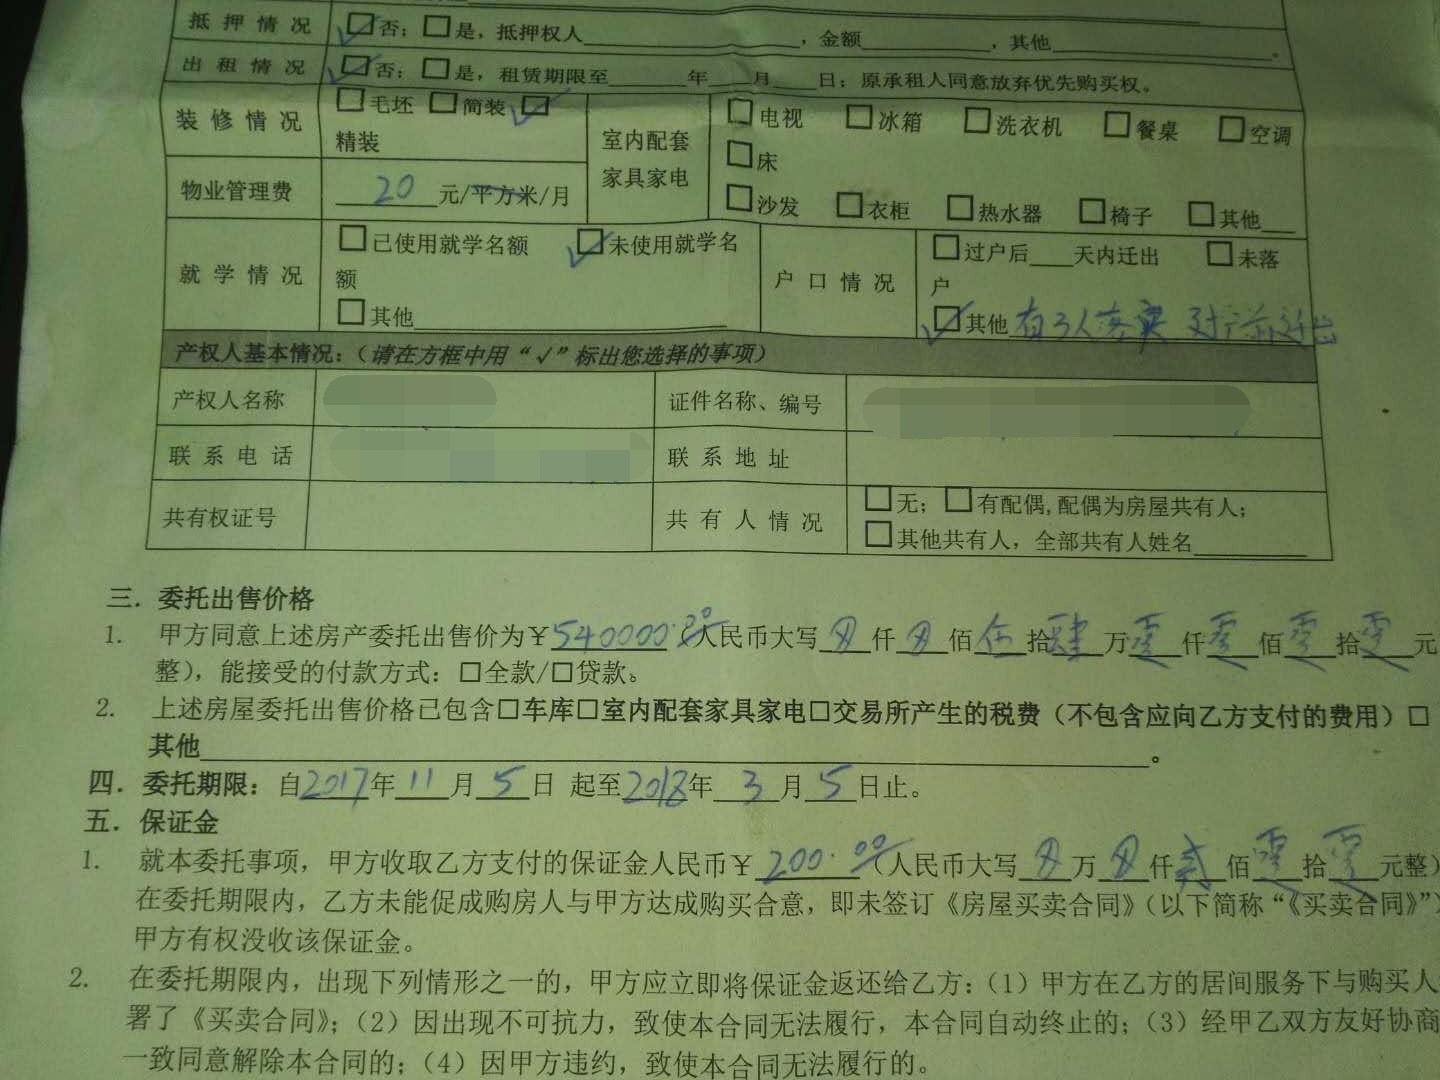 抵押情况 ☑否；□是，抵押权人________，金额______，其他______。
出租情况 ☑否；□是，租赁期限至____年__月__日；原承租人同意放弃优先购买权。
装修情况 □毛坯 □简装 ☑
精装
室内配套
家具家电
□电视 □冰箱 □洗衣机 □餐桌 □空调
□床
□沙发 □衣柜 □热水器 □椅子 □其他__
物业管理费 20 元/平方米/月
就学情况 □已使用就学名额 ☑未使用就学名
额
□其他
户口情况 □过户后__天内迁出 □未落
户
☑其他 有 人落 过户前迁出
产权人基本情况：（请在方框中用“√”标出您选择的事项）
产权人名称 证件名称、编号
联系电话 联系地址
共有权证号 共有人情况 □无；□有配偶,配偶为房屋共有人；
□其他共有人，全部共有人姓名______
三．委托出售价格
1. 甲方同意上述房产委托出售价为￥540000.00（人民币大写 仟 佰伍拾肆万零仟零佰零拾零元
整），能接受的付款方式：□全款/□贷款。
2. 上述房屋委托出售价格已包含□车库□室内配套家具家电□交易所产生的税费（不包含应向乙方支付的费用）□
其他______。
四．委托期限：自2017年11月5日 起至2018年3月5日止。
五．保证金
1. 就本委托事项，甲方收取乙方支付的保证金人民币￥200.00（人民币大写 万 仟贰佰零拾零元整）
在委托期限内，乙方未能促成购房人与甲方达成购买合意，即未签订《房屋买卖合同》（以下简称“《买卖合同》”）
甲方有权没收该保证金。
2. 在委托期限内，出现下列情形之一的，甲方应立即将保证金返还给乙方：（1）甲方在乙方的居间服务下与购买人
署了《买卖合同》；（2）因出现不可抗力，致使本合同无法履行，本合同自动终止的；（3）经甲乙双方友好协商
一致同意解除本合同的；（4）因甲方违约，致使本合同无法履行的。